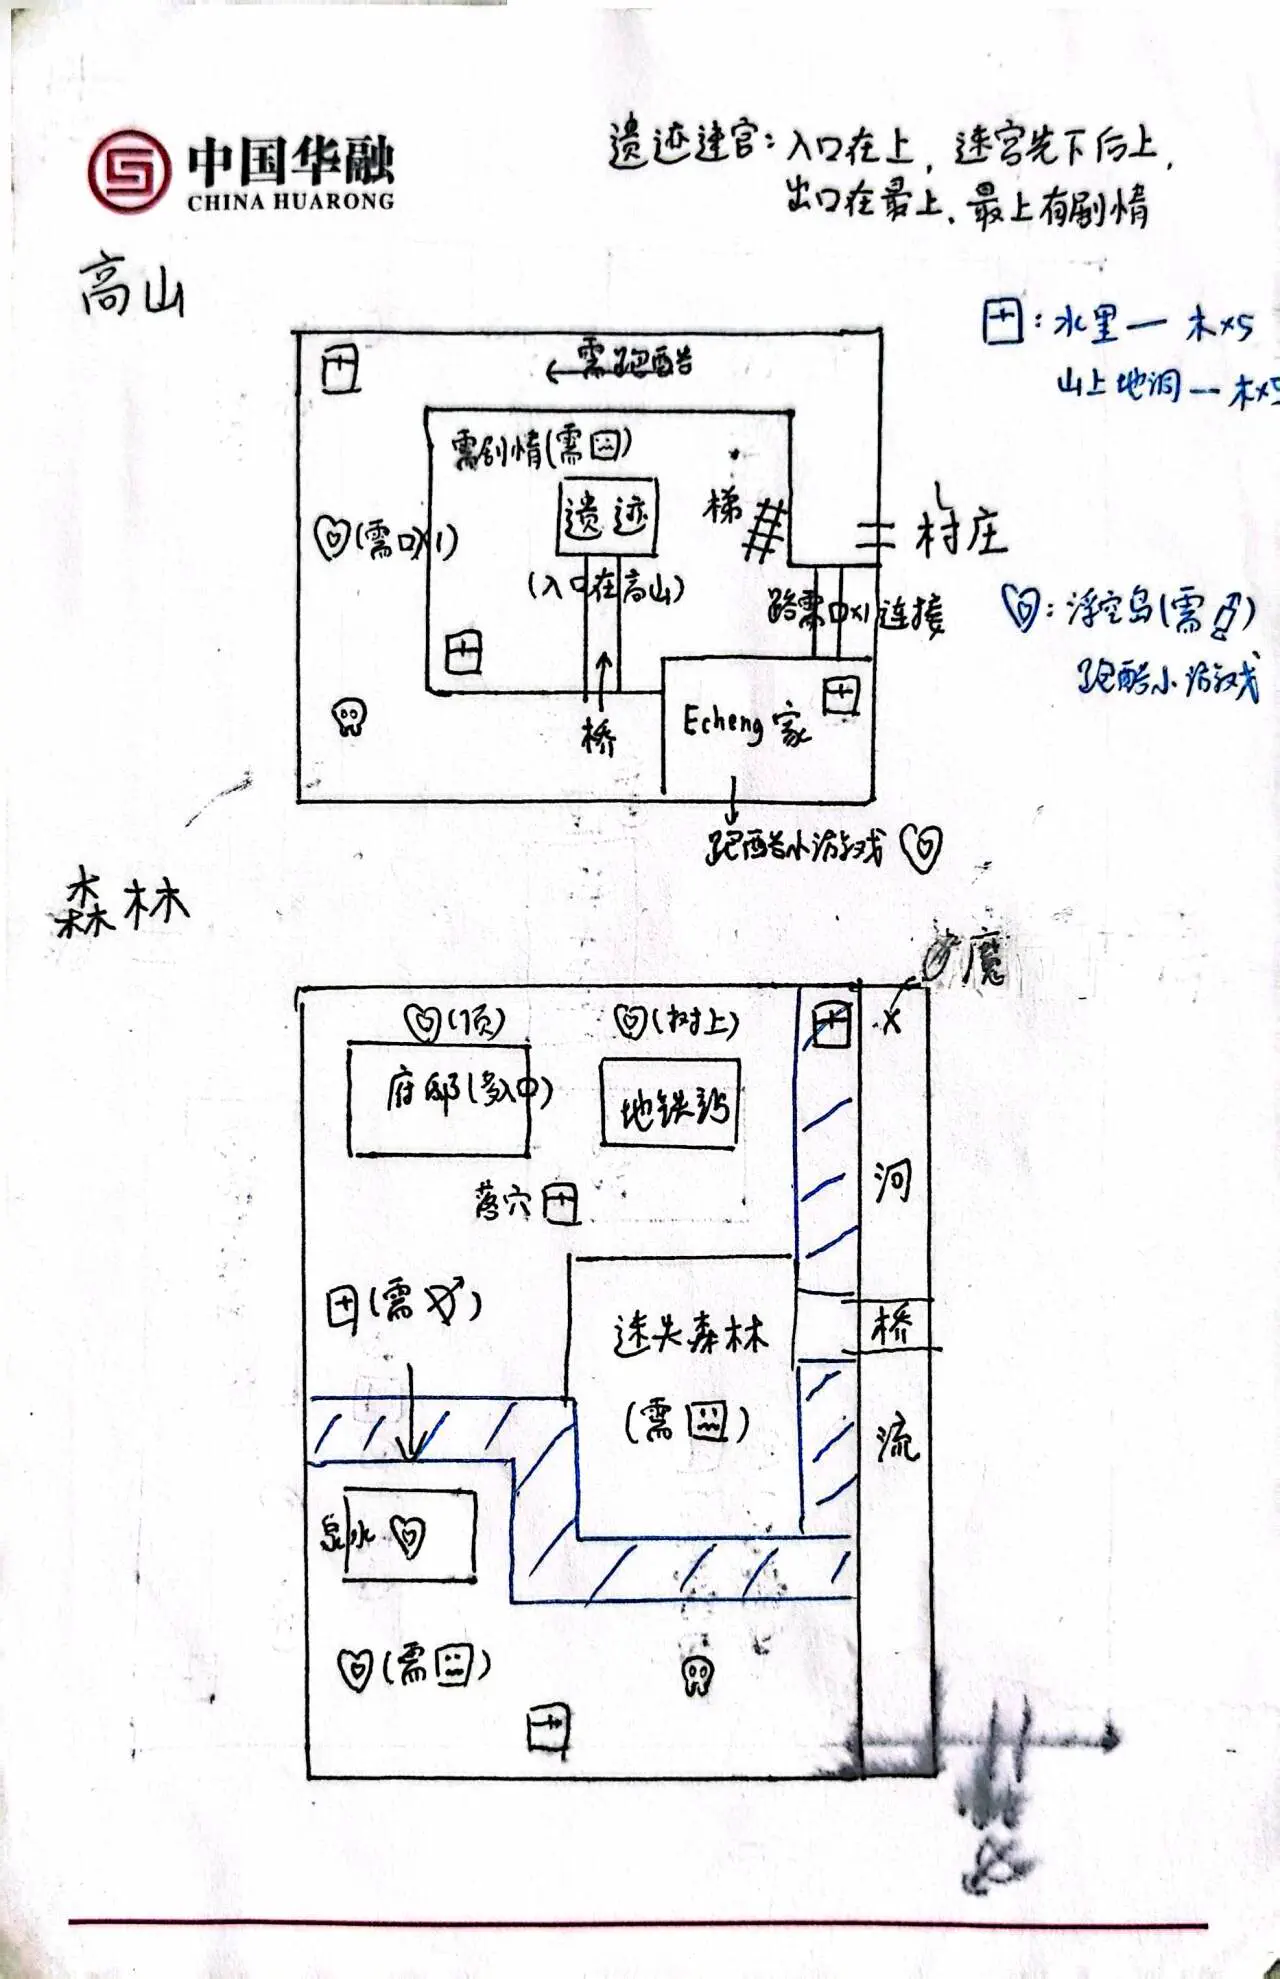 中国华融
CHINA HUARONG
遗迹迷宫：入口在上，迷宫先下后上，
出口在最上、最上有剧情
高山
：水里一 木×5
山上地洞--木×5
需跑酷
需剧情(需)
遗迹
梯
村庄
(需口×1)
(入口在高山)
路需口×1连接
：浮空岛(需)
跑酷小游戏
桥
Echeng家
跑酷小游戏
森林
魔
×
(顶)
(树上)
府邸(多入口)
地铁站
河
落穴
(需)
迷失森林
桥
(需)
流
泉水
(需)